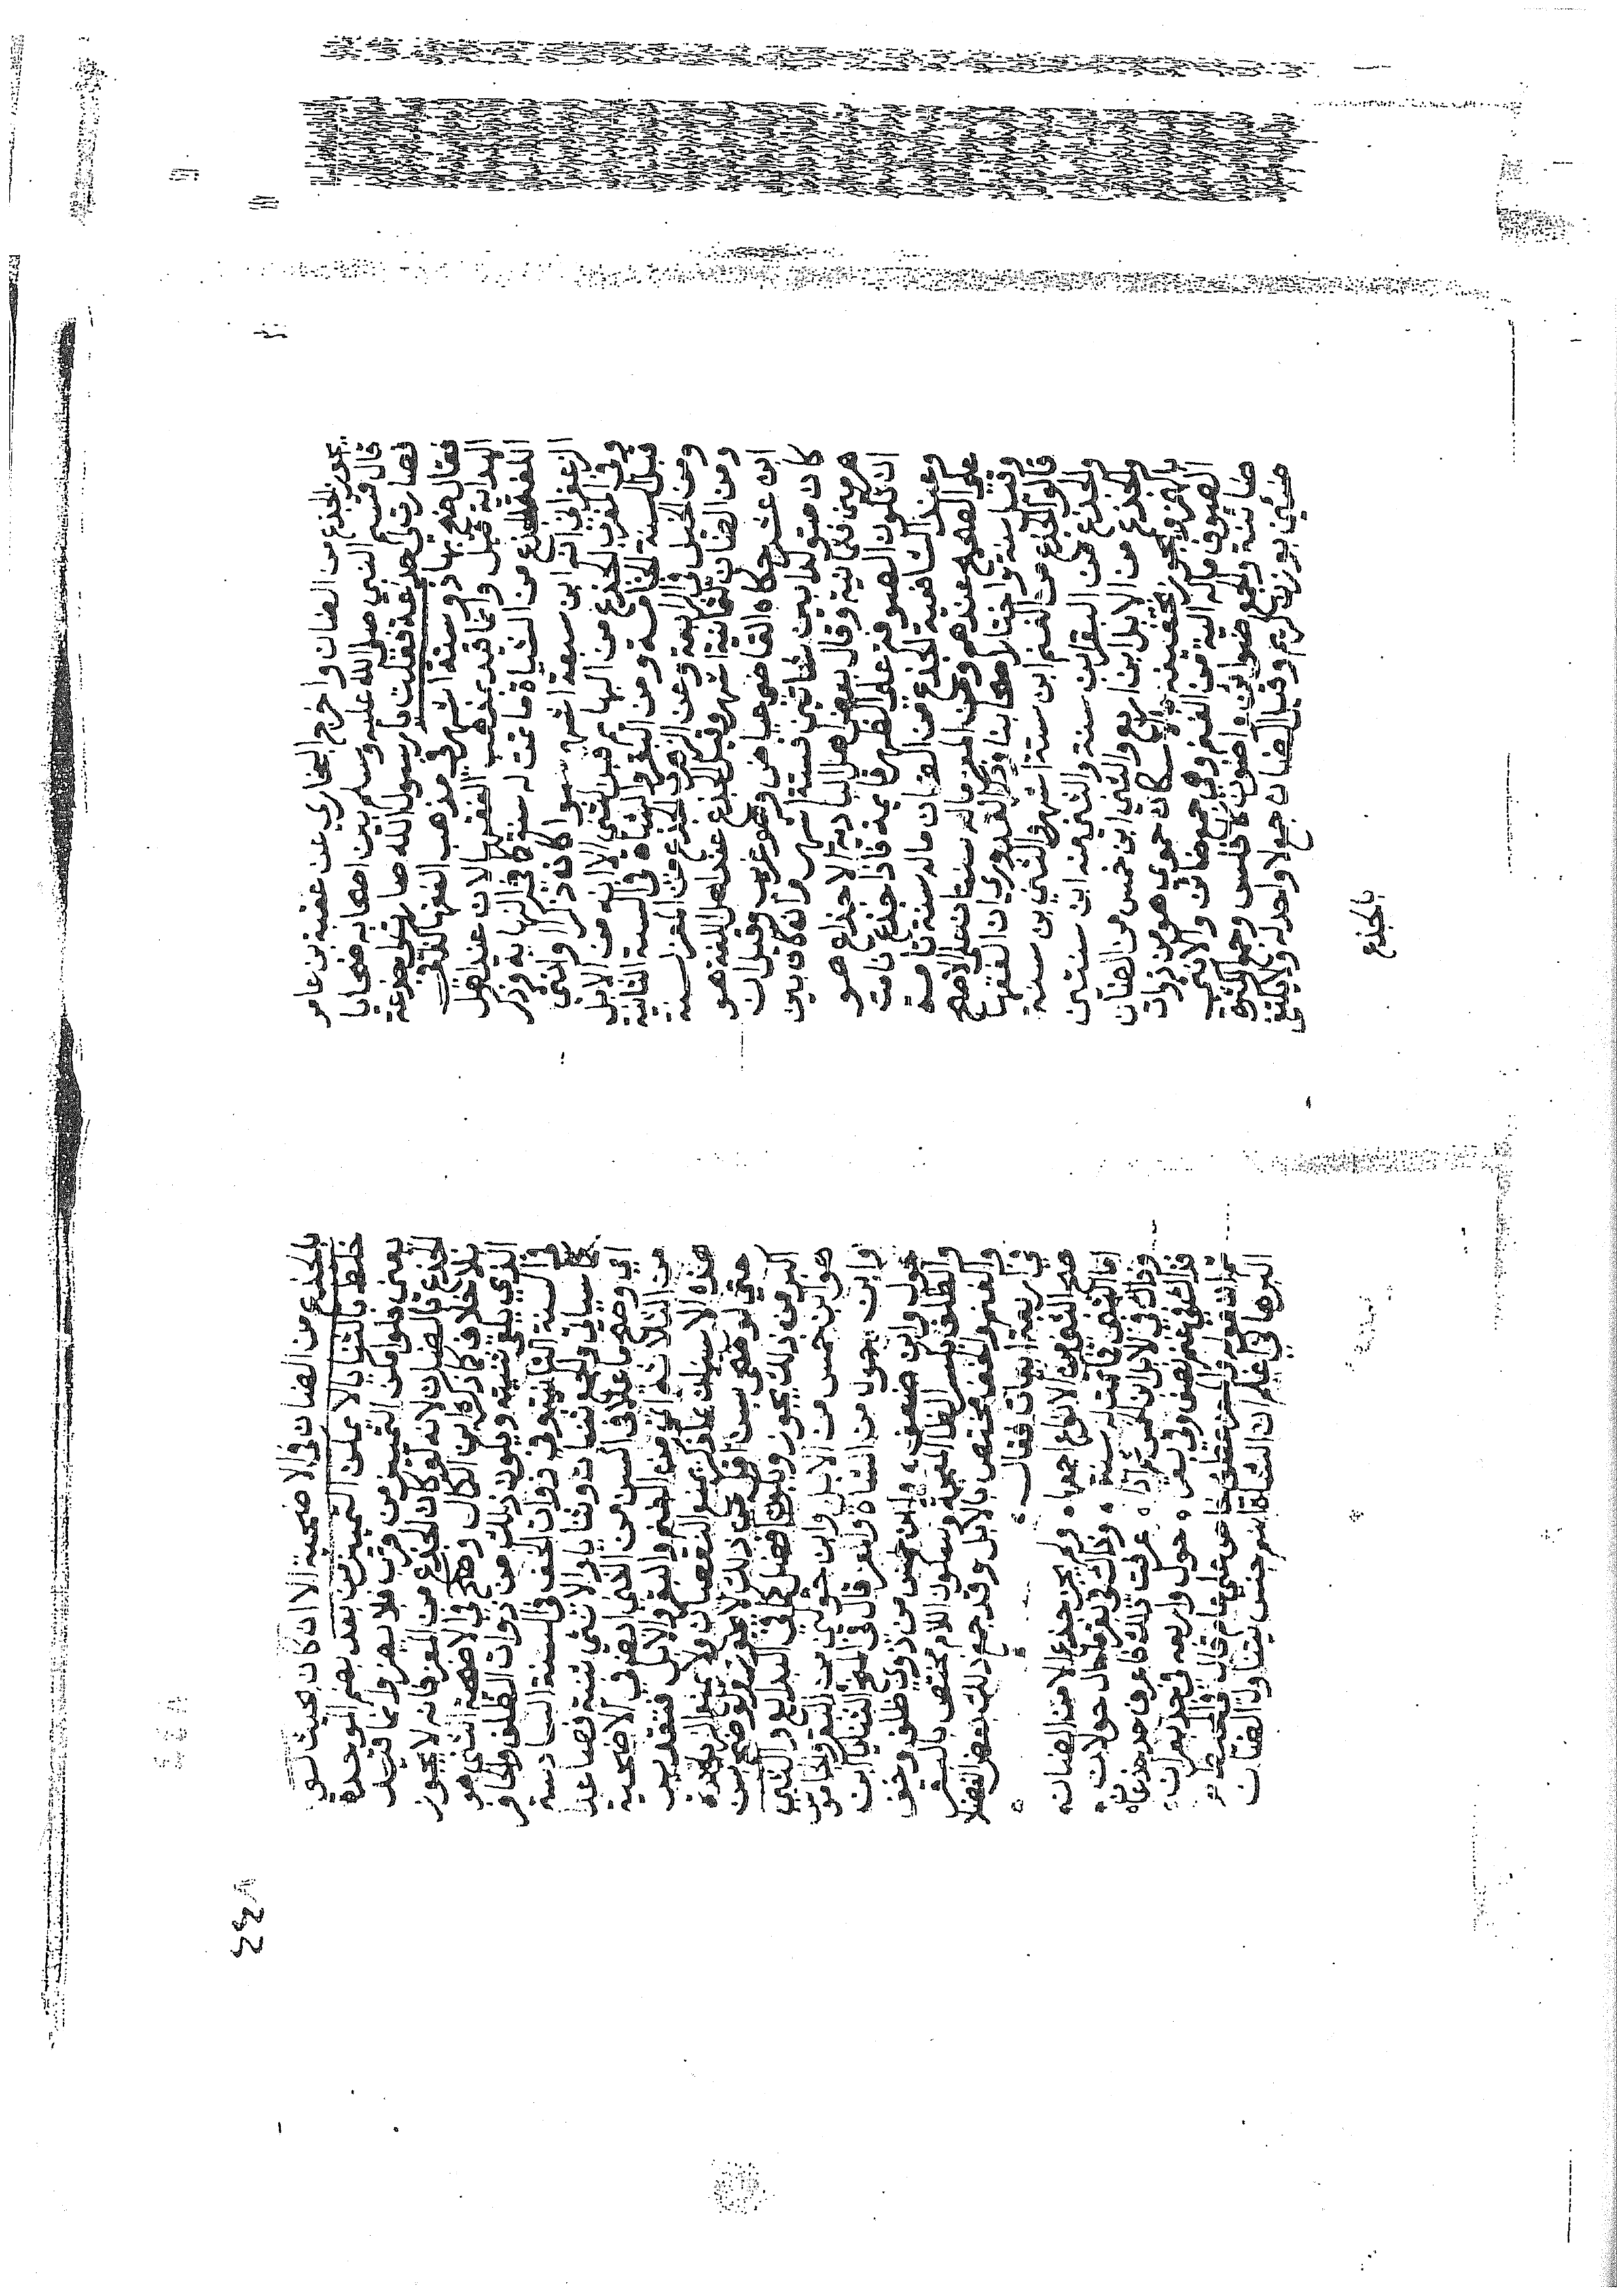 يجوز الجذع من الضان واخرج البخاري عن عقبة بن عامر
قال قسم النبي صلى الله عليه وسلم بين اصحابه ضحايا
فصارت لي جذعة فقلت يا رسول الله صارت لي جذعة
فقال ضح بها
البداية قيل وانما قيد بمذهب الفقهاء لان عند اهل
اللغة الجذع من الشياة ما تمت له سنة كما في النهاية وذكر
الزعفراني انه ابن سبعة اشهر سوا كان ذكرا او انثى
وفي المغرب الجذع من البهايم قبل الثني الا انه من الابل
قبل السنة الخامسة ومن البقر والشاة في السنة الثانية
ومن الخيل في الرابعة وعن الزهري الجذع من المعز لسنة
ومن الضان لثمانية اشهر وقيل الجذع عند اهل اللغة هو
ابن عشر حكاه القاضي عياض وهو غريب وقيل ان
كان متولدا بين شاتين فستة اشهر وان كان بين
هرمين فثمانية وقال بعض اهل البادية الاجذاع هو
ان تكون الصوفة على الظهر قايمة فاذا جذع نامت
وعند الشافعية الجذع من الضان ماله سنة تامة
على الصحيح عندهم ومن المعز ماله سنتان على الاصح
وقيل سنة واختار اصحابنا وذكر القدوري ان الفقها
قالوا الجذع من الغنم ابن ستة اشهر والثني بن سنة
والجذع من البقر ابن سنة والثني منه ابن سنتين
والجذع من الابل ابن اربع والثني ابن خمس من الضان
بالهمز ويجوز تخفيفه
الصوف ماله الية من الغنم وهي جمع ضائن والانثى
ضاينة والجمع ضوائن
ضئين بوزن كريم وقيل الضان جمع لا واحد له ولا يكتفي
بالجذع
٢٤٨
بالجذع من الضان في الاضحية الا ان كان بحيث لو
خلط بالثنايا لا يمكن التمييز من بعد بضم الموحدة
يعني فلو امكن التمييز من قرب فلا يضر وانما قيد
الجذع بالضان لانه لو كان الجذع من المعز فانه لا يجوز
بلا خلاف كما ذكره ابن الكمال وصح في الاضحية الثني هو
الذي يلقي ثنيته ويكون ذلك من ذوات الظلف والحافر
في السنة الثانية وفي ذوات الخف في السنة السادسة
كما سياتي والجمع ثنيات وثنايا والانثى ثنية فصاعدا
اي وصح ما علا في السن من الثني ايضا في الاضحية
من الثلاثة انواع الغنم والبقر والابل فتقدير
هذه الاسنان بما ذكر يمنع النقصان ولا يمنع الزيادة
حتى لو ضحى بسن اقل من ذلك لا يجوز ولو ضحى بسن
اكبر من ذلك يجوز ويكون افضل كما في البدايع والثني
هو ابن خمس من الابل وابن حولين من البقر والجاموس
وابن حول من الشاة والمعز قال في المنح الثنايا ابن
حول وابن ضعف وابن خمس من ذوي ظلف وخف
والظلف بكسر الظا المعجمة وسكون اللام مختص بالبقر
والغنم والخف مختص بالابل وقد جمع ذلك بعض الفضلا
في اربعة ابيات فقال
صح الثني من الانواع اجمعها ولم يجز جذع الا من الضان
اما الثني فما تمت له سنة وذاك في بقر فالحال حولان
وذاك في الابل ان خمس عرفت ذلك فاعرف حد جذعان
فذا لفي غنم نصف وفي بقر حول واربعة في حد بعران
البرهاني فيعلم ان الشاة اسم جنس يتناول الضان